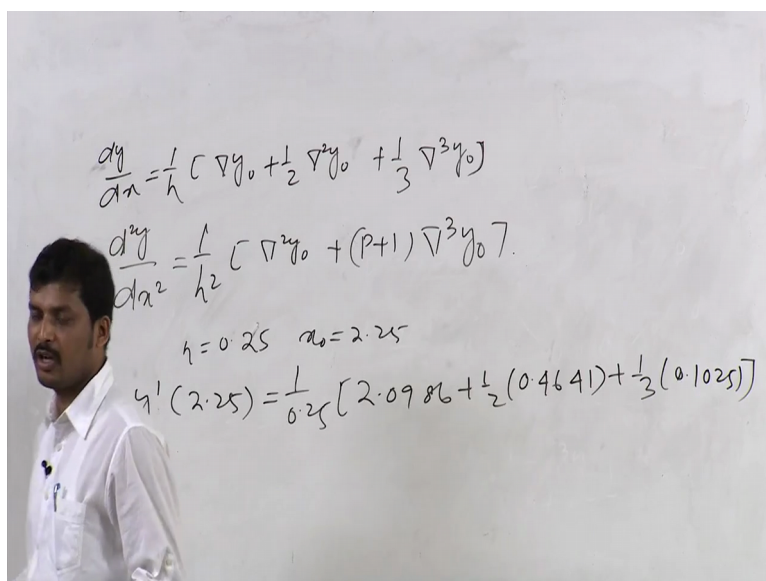 dy/dx = 1/h [ ∇y₀ + 1/2 ∇²y₀ + 1/3 ∇³y₀ ]
d²y/dx² = 1/h² [ ∇²y₀ + (P+1) ∇³y₀ ].
h = 0.25 x₀ = 2.25
y'(2.25) = 1/0.25 [ 2.0986 + 1/2 (0.4641) + 1/3 (0.1025) ]